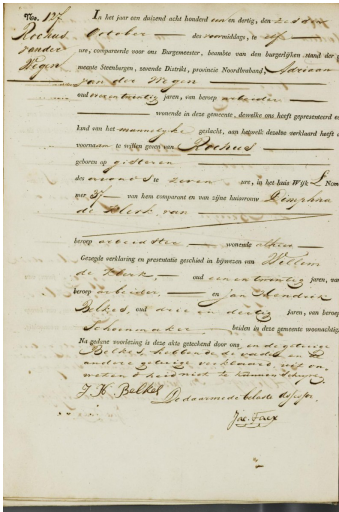 No. 137.
Rochus
van der
Wegen
In het jaar een duizend acht honderd een en dertig, den zesden
October des voormiddags, te elf
ure, compareerde voor ons Burgemeester, beambte van den burgerlijken stand der
meente Steenbergen, tweede Distrikt, provincie Noordbraband, Adriaan
van der Wegen
oud jaren, van beroep arbeider
wonende in deze gemeente, dewelke ons heeft gepresenteerd een
kind van het mannelyke geslacht, aan hetwelk dezelve verklaard heeft
voornaam te willen geven van Rochus
geboren op gisteren
des avonds te zeven ure, in het huis Wijk L Nom
mer 37 van hem comparant en van zijne huisvrouw Dimphna
de Klerk, van
beroep wonende alhier
Gezegde verklaring en presentatie geschied in bijwezen van Willem
de Klerk, oud een en twintig jaren, van
beroep arbeider, en Jan Hendrick
Belkes, oud drie en dertig jaren, van beroep
Schoenmaker beiden in deze gemeente woonachtig
Na gedane voorlezing is deze akte geteekend door ons en de getuige
Belkes, hebbende de vader en
andere getuige verklaard, mits on-
wetendheid niet te kunnen schryven.
J. H. Belkes
De daarmede belaste
Jac. Faex